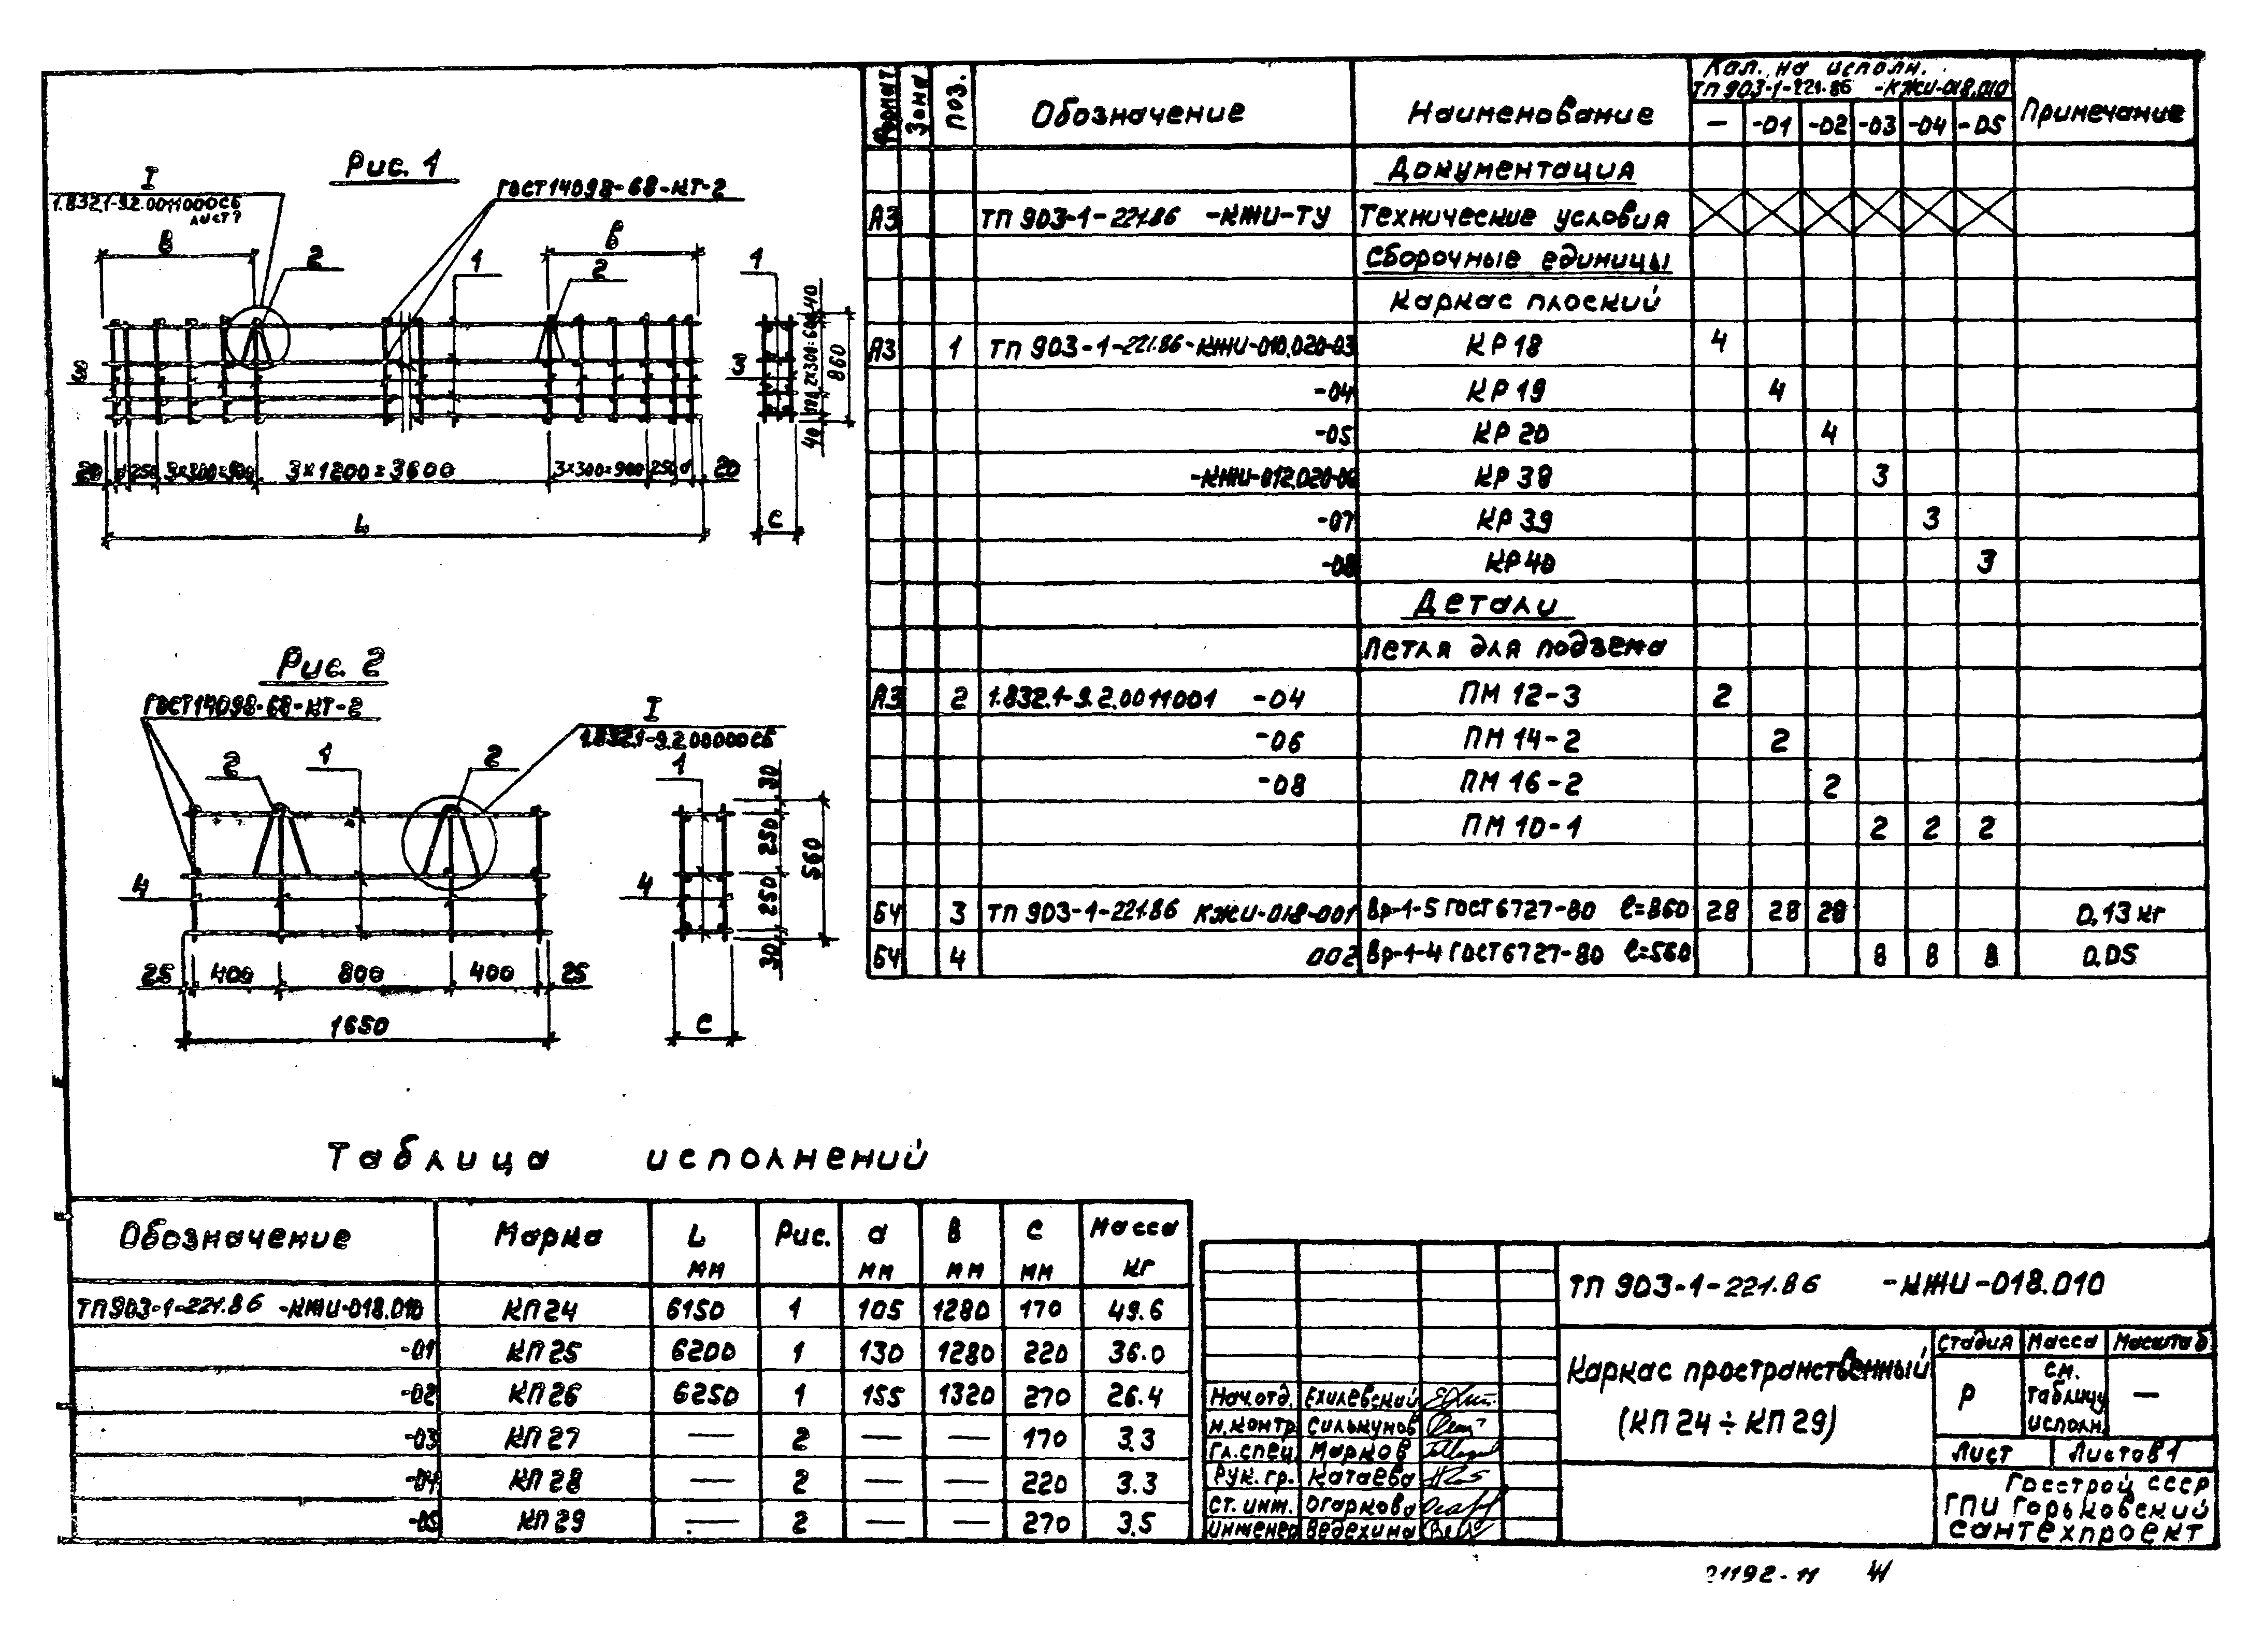 Рис. 1
I
1.832.1-9.2.0011000СБ
лист 7
ГОСТ 14098-68-КТ-2
в
2
1
2
в
1
3
40
2×300=600
180
40
860
20
а
250
3×300=900
3×1200=3600
3×300=900
250
а
20
L
с
Рис. 2
ГОСТ 14098-68-КТ-2
I
1.832.1-9.2.00000СБ
2
1
2
1
4
4
30
250
250
30
560
25
400
800
400
25
1650
с
Формат Зона Поз. Обозначение Наименование Кол. на исполн. Примечание
ТП 903-1-221.86 -КЖИ-018.010
— -01 -02 -03 -04 -05
Документация
А3 ТП 903-1-221.86 -КЖИ-ТУ Технические условия
Сборочные единицы
Каркас плоский
А3 1 ТП 903-1-221.86-КЖИ-010.020-03 КР 18 4
-04 КР 19 4
-05 КР 20 4
-КЖИ-012.020-06 КР 38 3
-07 КР 39 3
-08 КР 40 3
Детали
Петля для подъема
А3 2 1.832.1-9.2.0011001 -04 ПМ 12-3 2
-06 ПМ 14-2 2
-08 ПМ 16-2 2
ПМ 10-1 2 2 2
БЧ 3 ТП 903-1-221.86 КЖИ-018-001 Вр-1-5 ГОСТ 6727-80 ℓ=860 28 28 28 0,13 кг
БЧ 4 002 Вр-1-4 ГОСТ 6727-80 ℓ=560 8 8 8 0.05
Таблица исполнений
Обозначение Марка L мм Рис. а мм в мм с мм Масса кг
ТП 903-1-221.86 -КЖИ-018.010 КП 24 6150 1 105 1280 170 49.6
-01 КП 25 6200 1 130 1280 220 36.0
-02 КП 26 6250 1 155 1320 270 26.4
-03 КП 27 — 2 — — 170 3.3
-04 КП 28 — 2 — — 220 3.3
-05 КП 29 — 2 — — 270 3.5
ТП 903-1-221.86 -КЖИ-018.010
Каркас пространственный
(КП 24 ÷ КП 29)
Стадия Масса Масштаб
Р см. таблицу исполн. —
Лист Листов 1
Госстрой СССР
ГПИ Горьковский
Сантехпроект
Нач.отд. Ехилевский
Н.контр Силькунов
Гл.спец. Марков
Рук. гр. Катаева
Ст. инж. Огаркова
Инженер Ведехина
21192-11 41